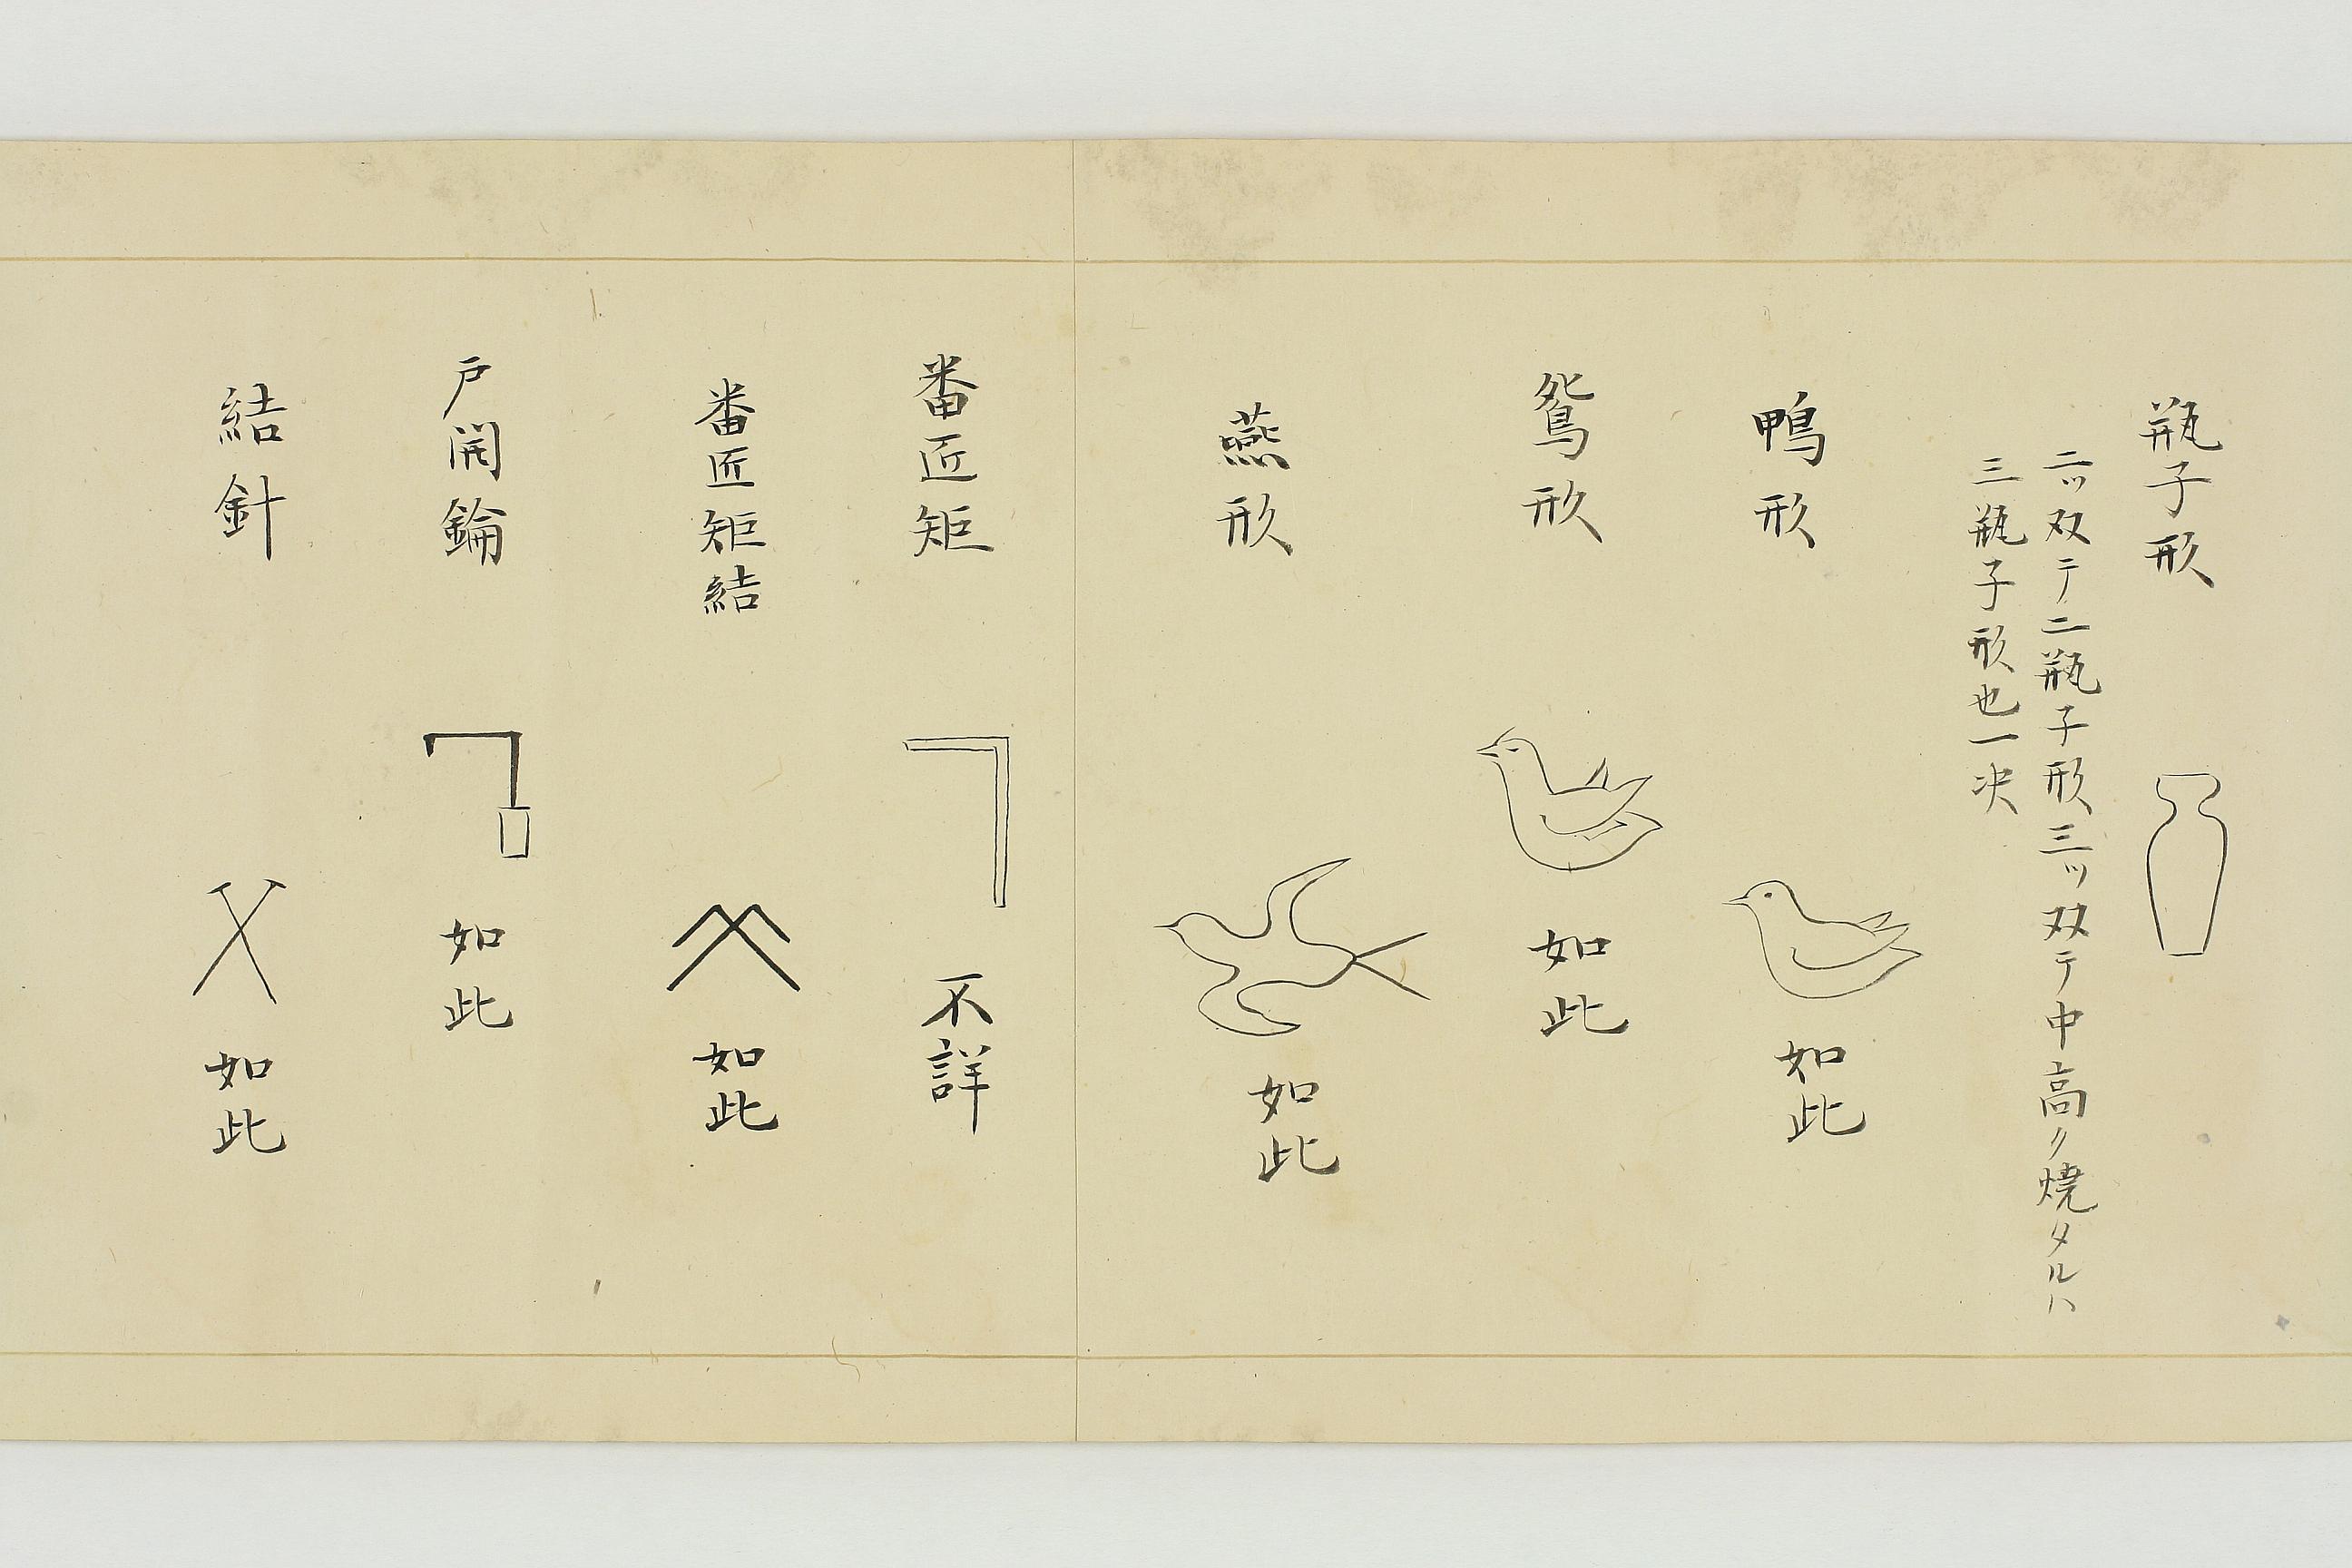 瓶子形
二ッ双テ二瓶子形三ッ双テ中高ク焼タルハ
三瓶子形也一决
鴨形
如此
鴛形
如此
燕形
如此
番匠矩
不詳
番匠矩結
如此
戸開鑰
如此
結針
如此